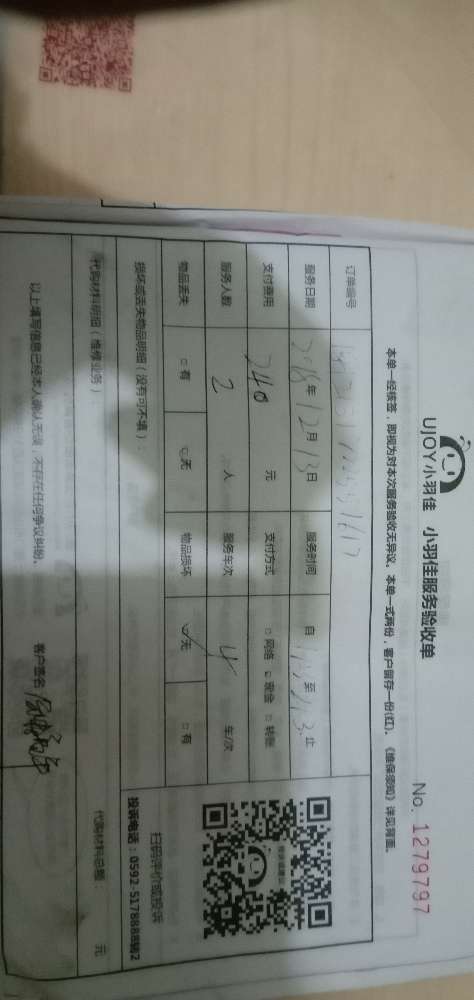 UJOY小羽佳 小羽佳服务验收单
No. 1279797
本单一经核签，即视为对本次服务验收无异议。本单一式两份，客户留存一份(红)。《维保须知》详见背面。
订单编号
服务日期 2018年 12月 13日 服务时间 自 至 止
支付费用 240 元 支付方式 □网络 □现金 □转账
服务人数 2 人 服务车次 4 车/次
物品丢失 □有 □无 物品损坏 □无 □有
损坏或丢失物品明细（没有可不填）：
扫码评价或投诉
投诉电话：0592-5178888转2
代购材料明细（维修业务）：
代购材料总额： 元
以上填写信息已经本人确认无误，不存在任何争议纠纷。
客户签名